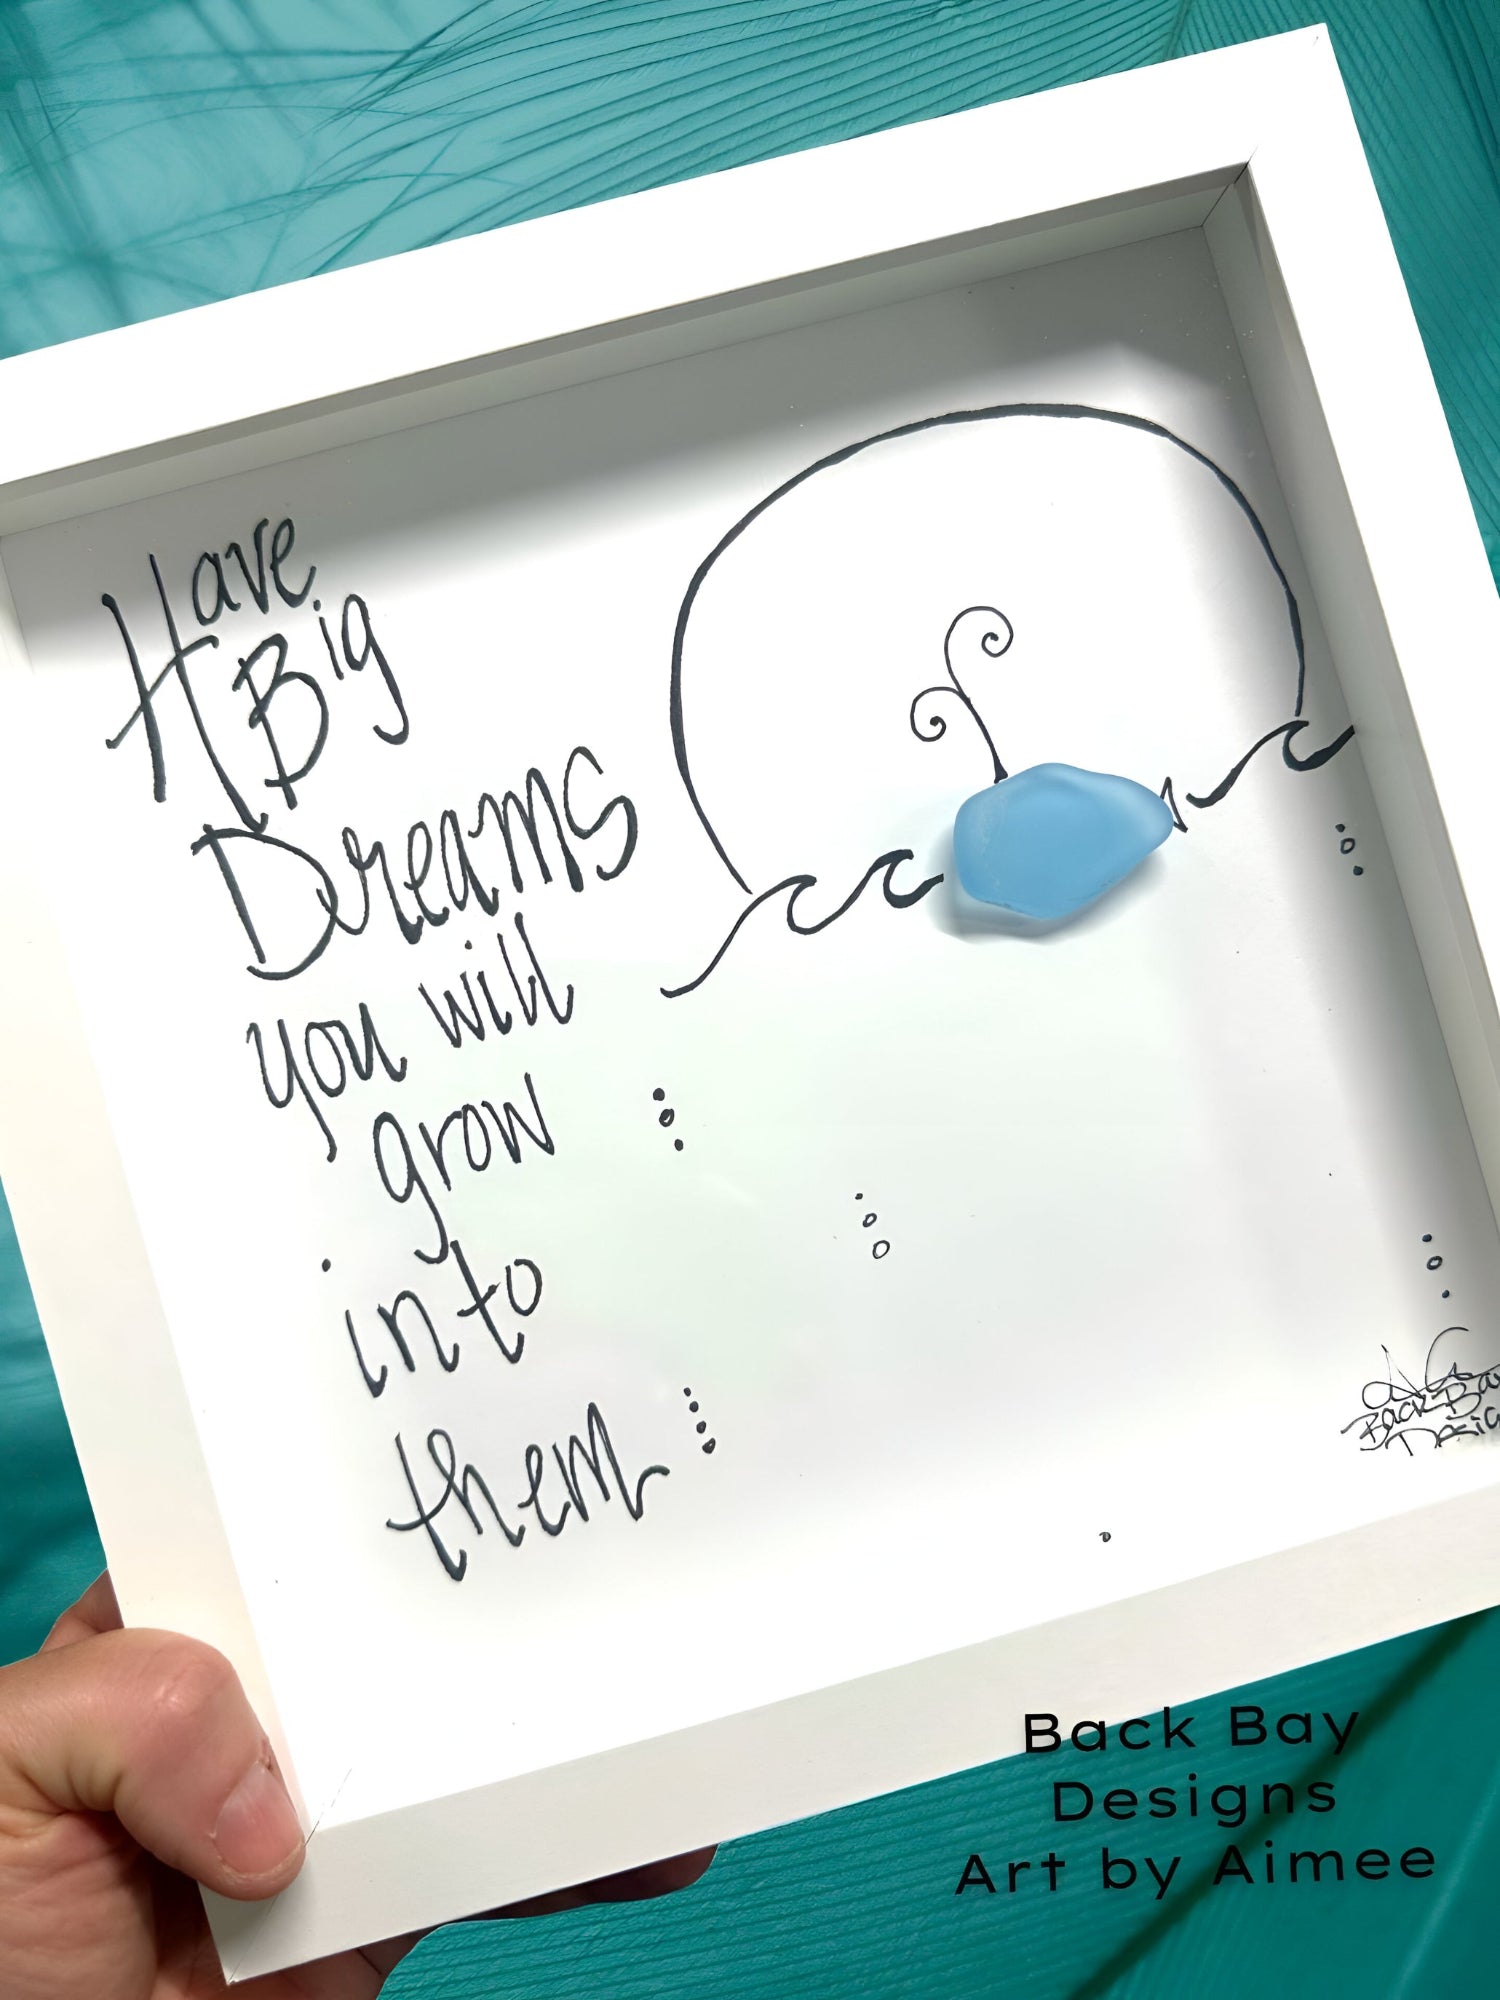 Have
Big
Dreams
you will
grow
into
them
Back Ba
Desig
Back Bay
Designs
Art by Aimee